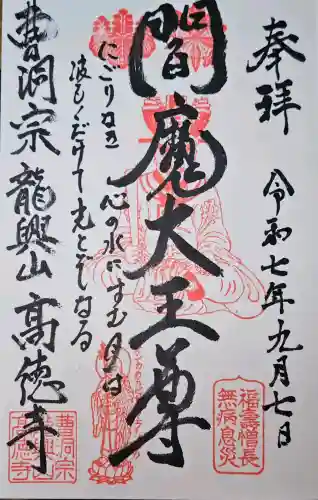 奉拝
令和七年九月七日
閻魔大王尊
にごりなき心の水にすむ月は
波もくだけて光とぞなる
曹洞宗龍興山高徳寺
福壽増長
無病息災
曹洞宗
高徳寺